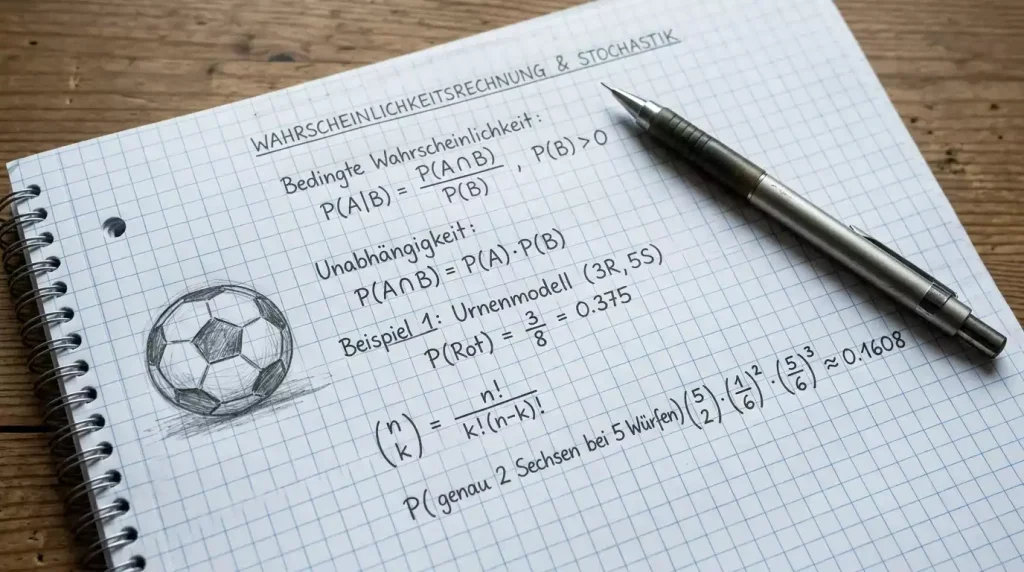 WAHRSCHEINLICHKEITSRECHNUNG & STOCHASTIK
Bedingte Wahrscheinlichkeit:
P(A|B) = P(A∩B)/P(B) , P(B)>0
Unabhängigkeit:
P(A∩B) = P(A)·P(B)
Beispiel 1: Urnenmodell (3R, 5S)
P(Rot) = 3/8 = 0.375
(n k) = n!/k!(n-k)!
P(genau 2 Sechsen bei 5 Würfen) (5 2)·(1/6)²·(5/6)³ ≈ 0.1608